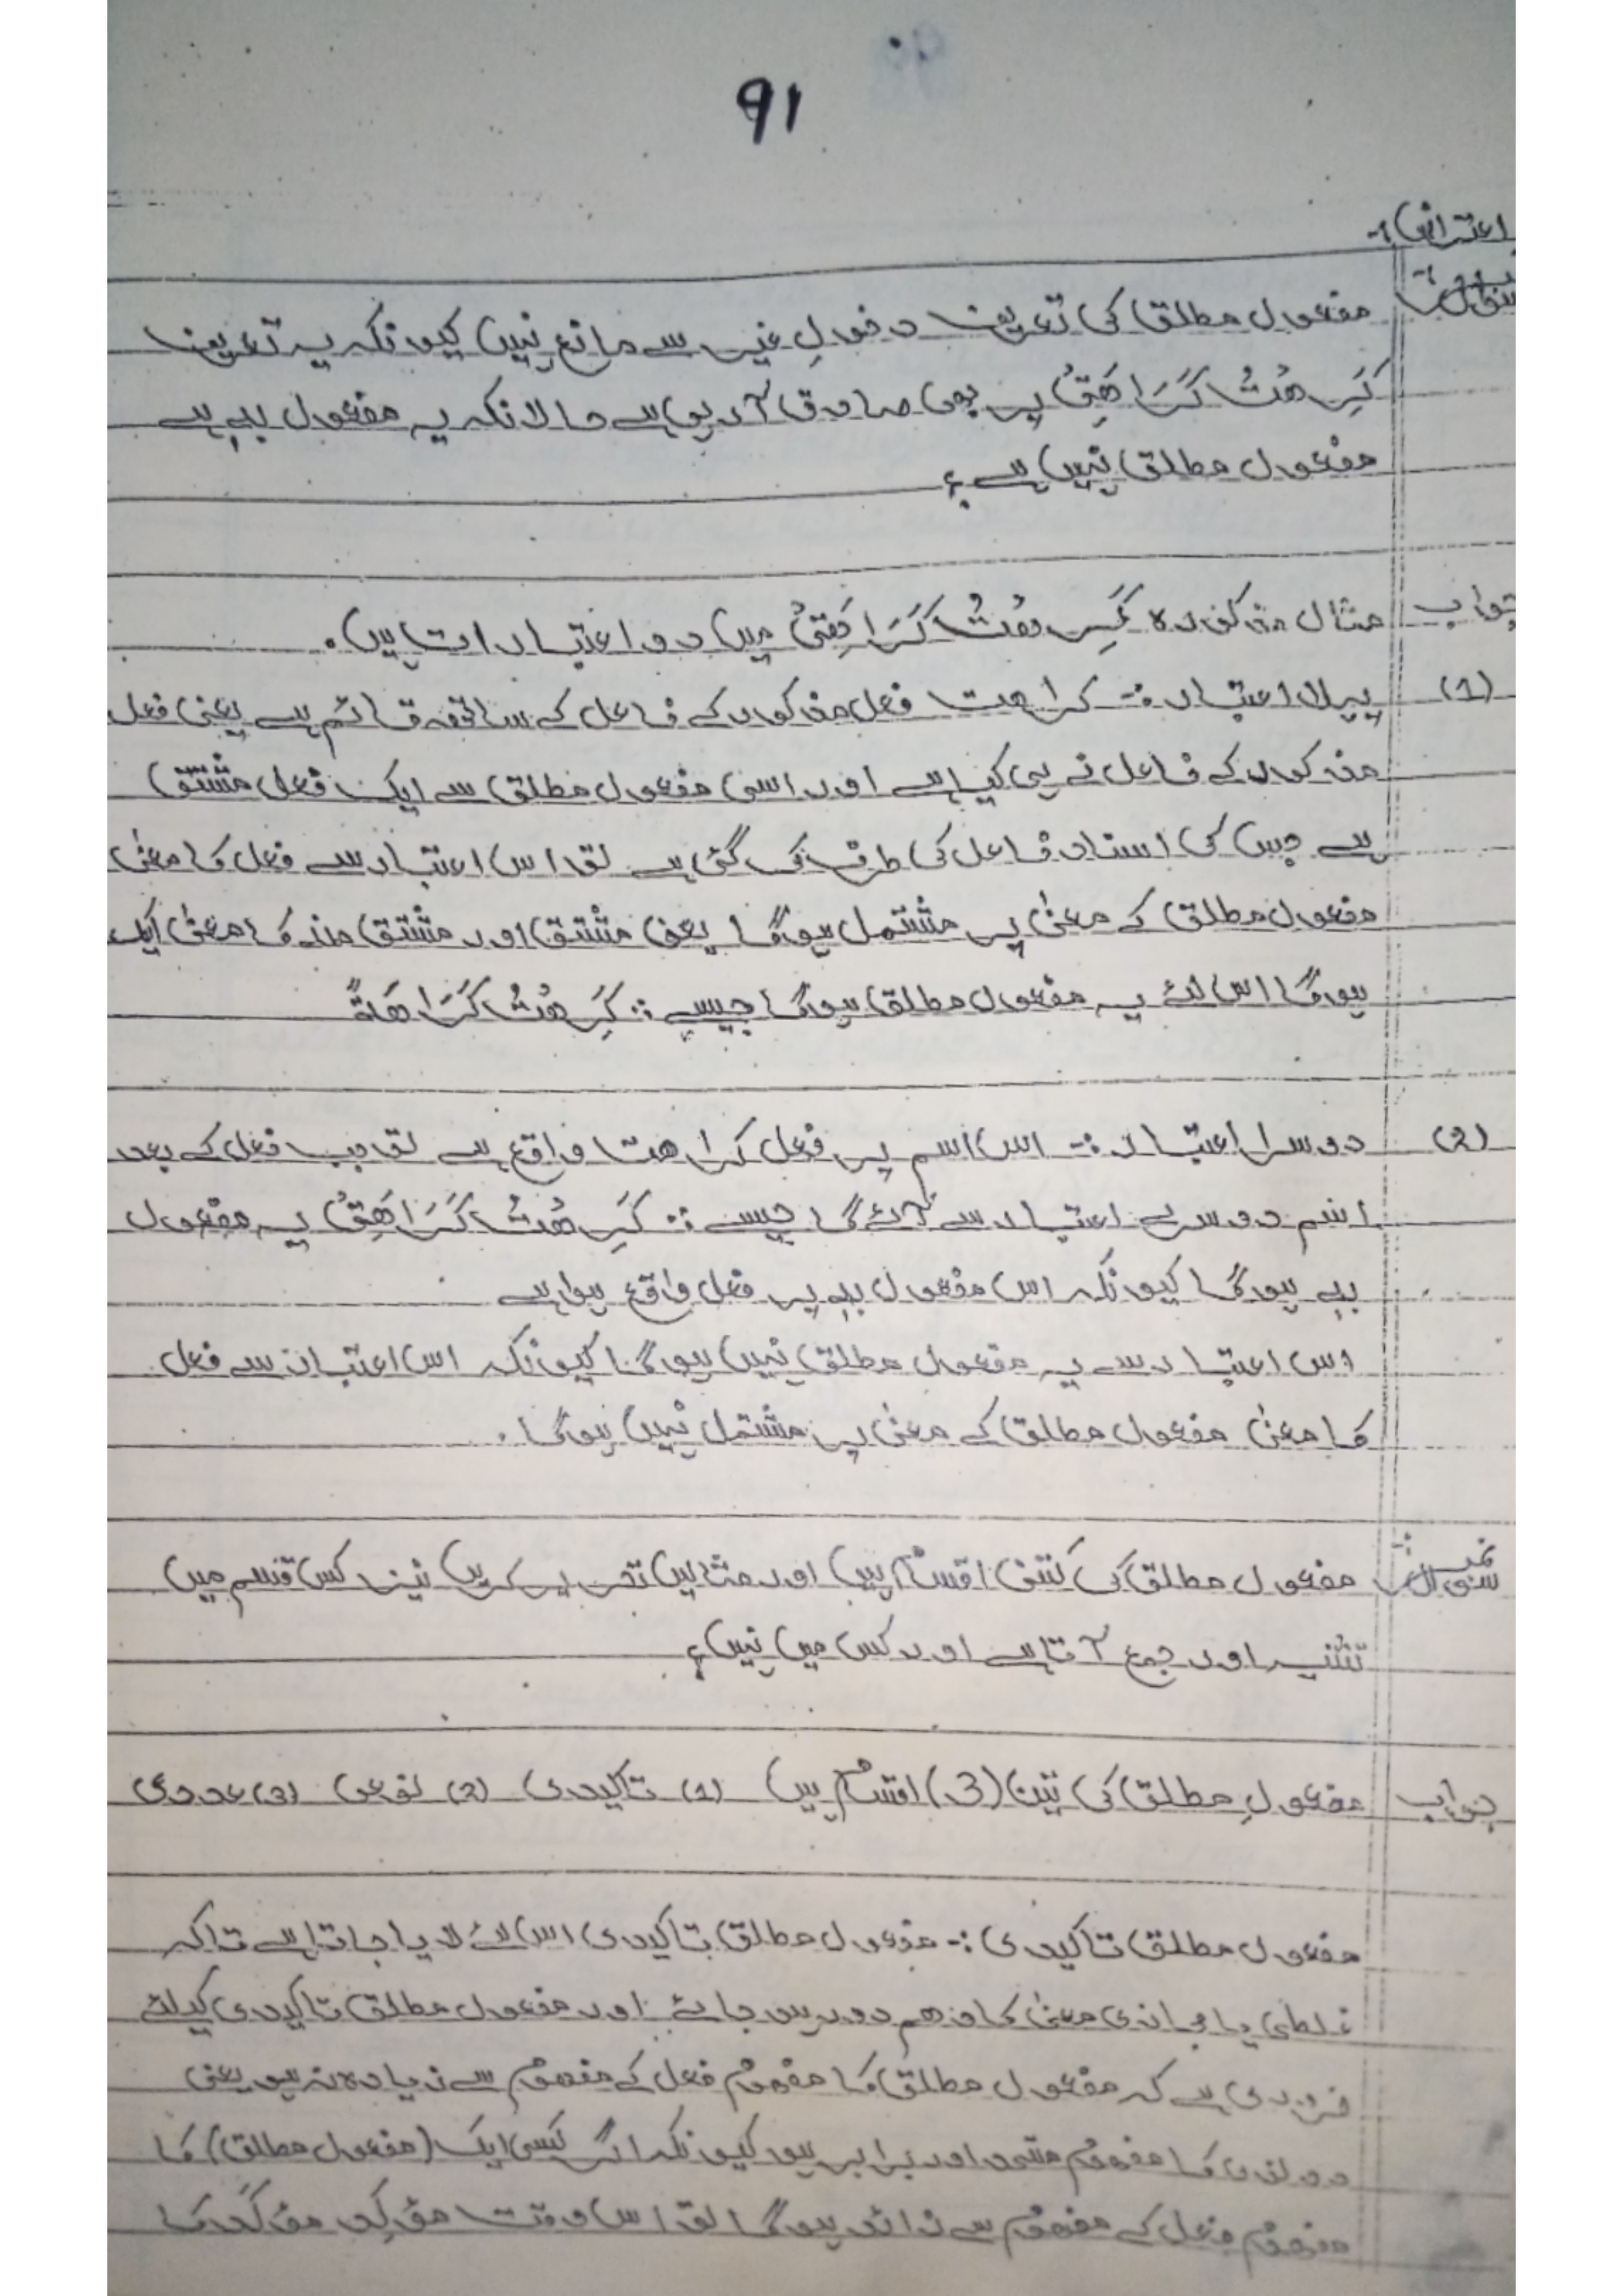 91
اعتراض :-
سوال :- مفعول مطلق کی تعریف دخولِ غیر سے مانع نہیں کیونکہ یہ تعریف
کَرِهْتُ كَرَاهَتِیْ پر بھی صادق آرہی ہے حالانکہ یہ مفعول بہٖ ہے
مفعول مطلق نہیں ہے؟
جواب مثال مذکورہ كَرِهْتُ كَرَاهَتِیْ میں دو اعتبارات ہیں۔
(1) پہلا اعتبار :- کراھت فعل مذکور کے فاعل کے ساتھ قائم ہے یعنی فعل
مذکور کے فاعل نے ہی کیا ہے اور اسی مفعول مطلق سے ایک فعل مشتق
ہے جس کی اسناد فاعل کی طرف کی گئی ہے تو اس اعتبار سے فعل کا معنیٰ
مفعول مطلق کے معنیٰ پر مشتمل ہوگا یعنی مشتق اور مشتق منہ کا معنیٰ ایک
ہوگا اس لئے یہ مفعول مطلق ہوگا جیسے :: كَرِهْتُ كَرَاهَةً
(2) دوسرا اعتبار :- اس اسم پر فعل کراھت واقع ہے تو جب فعل کے بعد
اسم دوسرے اعتبار سے آئے گا جیسے :: كَرِهْتُ كَرَاهَتِیْ یہ مفعول
بہٖ ہوگا کیونکہ اس مفعول بہٖ پر فعل واقع ہوا ہے
اس اعتبار سے یہ مفعول مطلق نہیں ہوگا کیونکہ اس اعتبار سے فعل
کا معنیٰ مفعول مطلق کے معنیٰ پر مشتمل نہیں ہوگا۔
سوال :- مفعول مطلق کی کتنی اقسام ہیں اور مثالیں تحریر کریں نیز کس قسم میں
تثنیہ اور جمع آتا ہے اور کس میں نہیں؟
جواب مفعولِ مطلق کی تین (3) اقسام ہیں (1) تاکیدی (2) نوعی (3) عددی
مفعول مطلق تاکیدی :- مفعول مطلق تاکیدی اس لئے لایا جاتا ہے تاکہ
غلطی یا مجازی معنیٰ کا وھم دور ہو جائے اور مفعول مطلق تاکیدی کیلئے
ضروری ہے کہ مفعول مطلق کا مفہوم فعل کے مفہوم سے زیادہ نہ ہو یعنی
دونوں کا مفہوم متحد اور برابر ہو کیونکہ اگر کسی ایک (مفعول مطلق) کا
مفہوم فعل کے مفہوم سے زائد ہوگا تو اس وقت مؤکِد مؤکَد کا